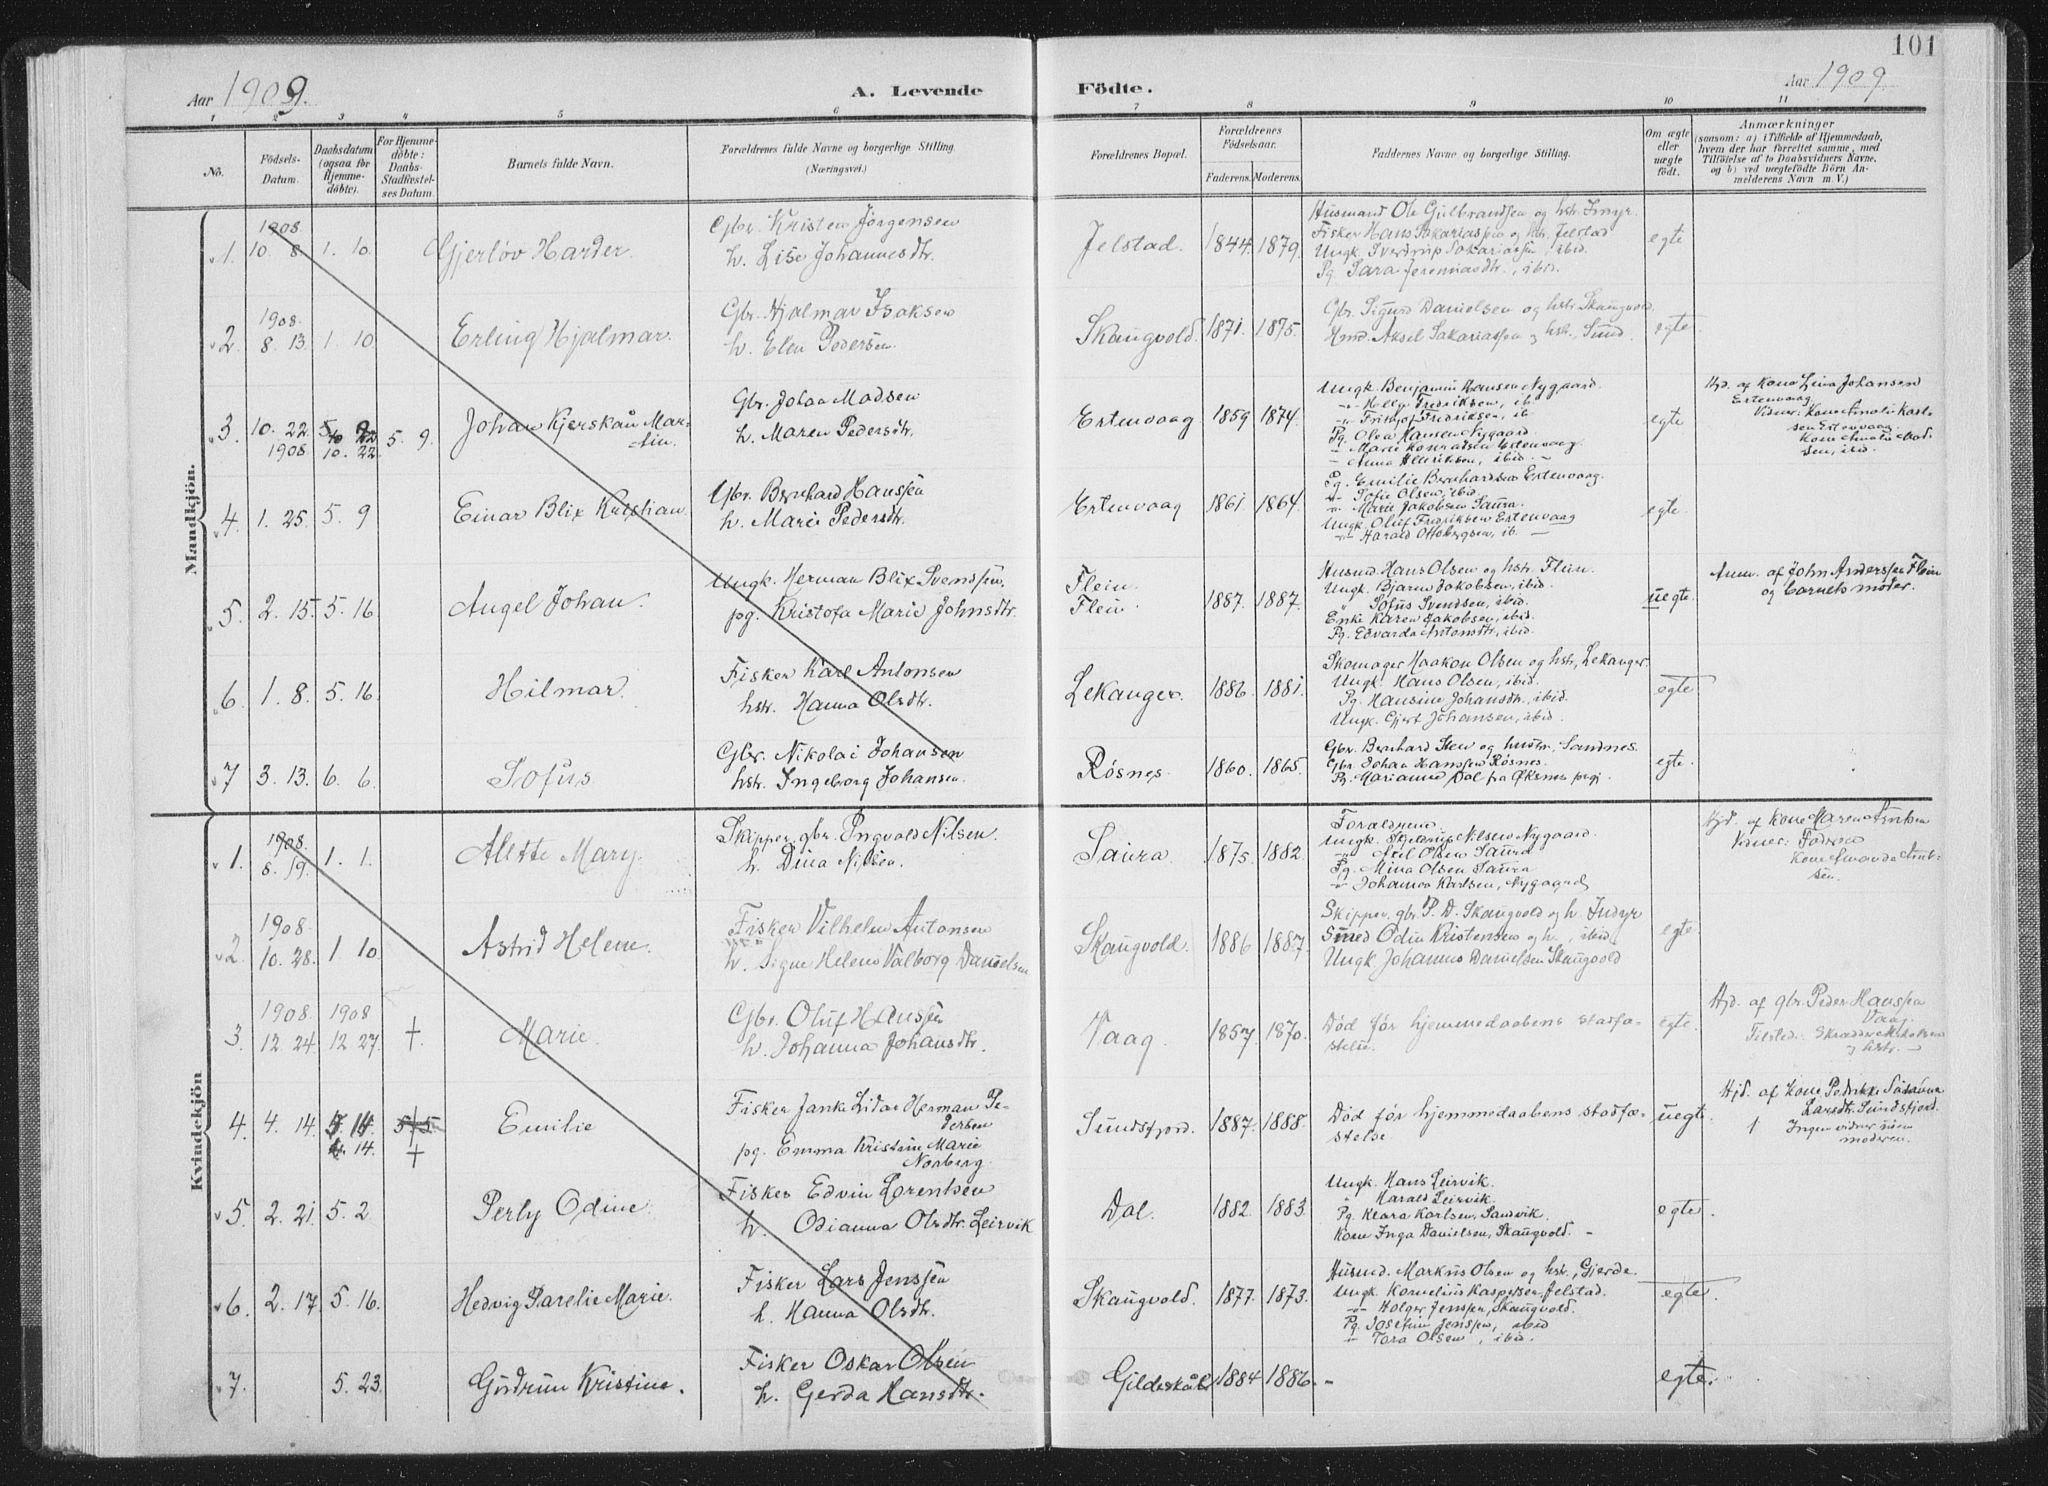 101
Aar 1909.
A. Levende
Födte.
Aar 1909
1 2 3 4 5 6 7 8 9 10 11
No.
Födsels-
Datum.
Daabsdatum
(ogsaa for
Hjemme-
döbte).
For Hjemme-
döbte:
Daabs-
Stadfæstel-
ses Datum.
Barnets fulde Navn.
Forældrenes fulde Navne og borgerlige Stilling.
(Næringsvei.)
Forældrenes Bopæl.
Forældrenes
Födselsaar.
Faderens. Moderens.
Faddernes Navne og borgerlige Stilling.
Om ægte
eller
uægte
födt.
Anmærkninger
(saasom: a) i Tilfælde af Hjemmedaab,
hvem der har forrettet samme, med
Tilföielse af to Daabsvidners Navne,
og b) ved uægtefödte Börn An-
melderens Navn m. V.)
Mandkjön.
1. 1908 10. 8. 1. 10. Gjerløv Harder.
Gbr. Kristen Jørgensen
h. Lise Johannesdtr.
Jelstad. 1844. 1879.
Husmand Ole Gulbrandsen og hst. Inyr.
Fisker Hans Sakariassen og hst. Jelstad
Ungk. Sverdrup Sakariassen, ibid.
Pg. Sara Jeremiasdtr., ibid.
egte
2. 1908. 8. 13. 1. 10 Erling Hjalmar.
Gbr. Hjalmar Isaksen
h. Elen Pedersen.
Skaugvold. 1871. 1875.
Gbr. Sigurd Danielsen og hst. Skaugvold.
Hmd. Aksel Sakariassen og hst., Sund.
egte
3. 10. 22. 1908 10. 22 5. 9. Johan Kjerskau Mar-
tin.
Gbr. Johan Madsen
h. Maren Pedersdtr.
Ertenvaag 1859 1874.
Ungk. Benjamin Hansen Nygaard.
-"- Helge Fredriksen, ib.
-"- Frithjof Fredriksen, ib.
Pg. Olea Hansen Nygaard.
- Marie Konradsen Ertenvaag
- Anna Henriksen, ibid. -
egte
Hjd. af Kone Lina Johansen
Ertenvaag
Vidner: Kone Amalie Karl-
sen Ertenvaag.
Kone Amalie Mad-
sen, ibid.
4. 1. 25. 5. 9 Einar Blix Kristian
Gbr. Bernhard Hanssen
h. Marie Pedersdtr.
Ertenvaag 1861. 1864.
Pg. Emilie Bernhardsen Ertenvaag.
-"- Sofie Olsen, ibid.
-"- Marie Jakobsen Saura.
Ungk. Oluf Fredriksen Ertenvaag
-"- Harald Ottobergsen, ib. -
egte.
5. 2. 15. 5. 16 Angel Johan.
Ungk. Herman Blix Svendsen.
pg. Kristofa Marie Johnsdtr.
Flein.
Flein. 1887. 1887.
Husmd. Hans Olsen og hst. Flein.
Ungk. Bjarne Jakobsen, ibid.
" Sofus Svendsen, ibid.
Enke Karen Jakobsen, ibid.
Pg. Edvarda Antonsdtr, ibid.
uegte.
Anm. af John Anderssen Flein
og barnets moder.
6. 1. 8. 5. 16. Hilmar.
Fisker Karl Antonsen
hst. Hanna Olsdtr.
Lekanger. 1886. 1881.
Skomager Haakon Olsen og hst., Lekanger.
Ungk. Hans Olsen, ibid.
Pg. Hansine Johansdtr., ibid.
Ungk. Gjert Johansen, ibid.
egte
7 3. 13. 6. 6. Sofus
Gbr. Nikolai Johansen
hst. Ingeborg Johansen.
Røsnes. 1860. 1865.
Gbr. Bernhard Steen og hustr., Sandnes.
Gbr. Johan Hanssen Røsnes.
Pg. Marianne Dal fra Øksnes prgj.
egte.
Kvindekjön
1. 1908. 8. 19. 1. 1. Alette Mary.
Skipper, gbr. Ingvald Nilsen.
h. Dina Nilsen.
Saura. 1875. 1882.
Foraldrene.
Ungk. Skjelerup Nilsen Nygaard.
Pg. Mina Olsen Saura
-"- Johanna Karlsen, Nygaard
Hjd. af Kone Maren
Vidner: Faderen
2. 1908. 10. 28. 1 10. Astrid Helene.
Fisker Vilhelm Antonsen
h. Signe Helene Valborg Danielsen
Skaugvold. 1886 1887.
Skipper, gbr. P. D. Skaugvold og h. Indyr
Smed Odin Kristensen og h., ibid.
Ungk Johannes Danielsen Skaugvold
egte.
3. 1908. 12. 24 1908 12 27. † Marie.
Gbr. Oluf Hanssen
h. Johanna Johansdtr.
Vaag. 1857. 1870.
Død før hjemmedaabens stadfæ-
stelse.
egte.
Hjd. af gbr. Peder Hanssen
Vaag.
Tilsted: Skrædder
og hstr. -
4. 4. 14. 4. 14. † Emilie
Fisker Janke Lidar Herman Pe-
dersen
pg. Emma Kristine Marie
Norberg.
Sundsfjord. 1887. 1888.
Død før hjemmedaabens stadfæ-
stelse
uegte.
Hjd. af Kone Pedrikke Susanna
Larsdtr. Sundsfjord.
Ingen vidner uden
moderen.
5. 2. 21. 5. 2 Perly Odine.
Fisker Edvin Lorentsen
h. Odianna Olsdtr. Leirvik
Dal. 1882. 1883.
Ungk. Hans Leirvik.
" Harald Leirvik.
Pg. Klara Karlsen, Sandvik.
Kone Inga Danielsen, Skaugvold. -
egte.
6. 2. 17. 5. 16. Hedvig Parelie Marie.
Fisker Lars Jenssen
h. Hanna Olsdtr.
Skaugvold. 1877. 1873.
Husmd. Markus Olsen og hst., Gjerde.
Ungk. Kornelius Kaspersen, Jelstad.
-"- Holger Jenssen, Skaugvold.
Pg. Josefine Jenssen, ibid
" Tora Olsen, ibid.
egte.
7. 5. 23. Gudrun Kristine.
Fisker Oskar Olsen
h. Gerda Hansdtr.
Gildeskaal 1884 1886. -
egte.